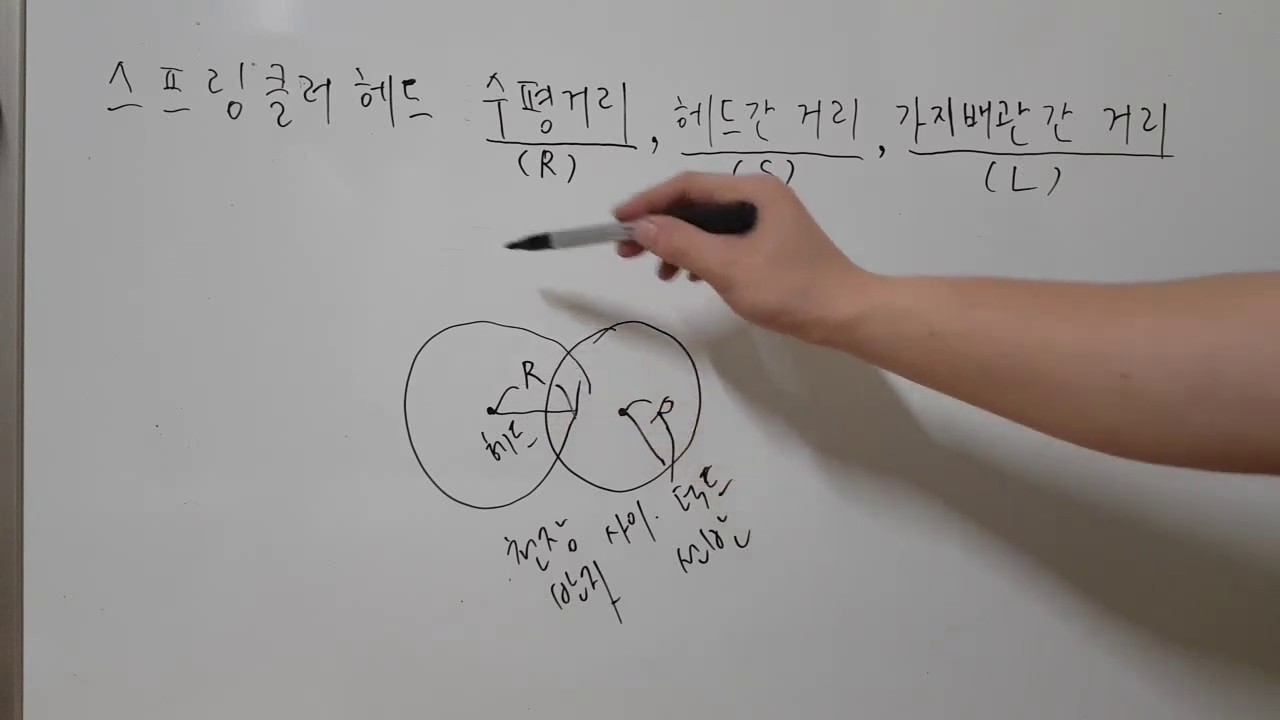 스프링클러 헤드 수평거리, 헤드간 거리, 가지배관 간 거리
(R) (S) (L)
R
헤드 R
천장 사이 덕트
반자 선반